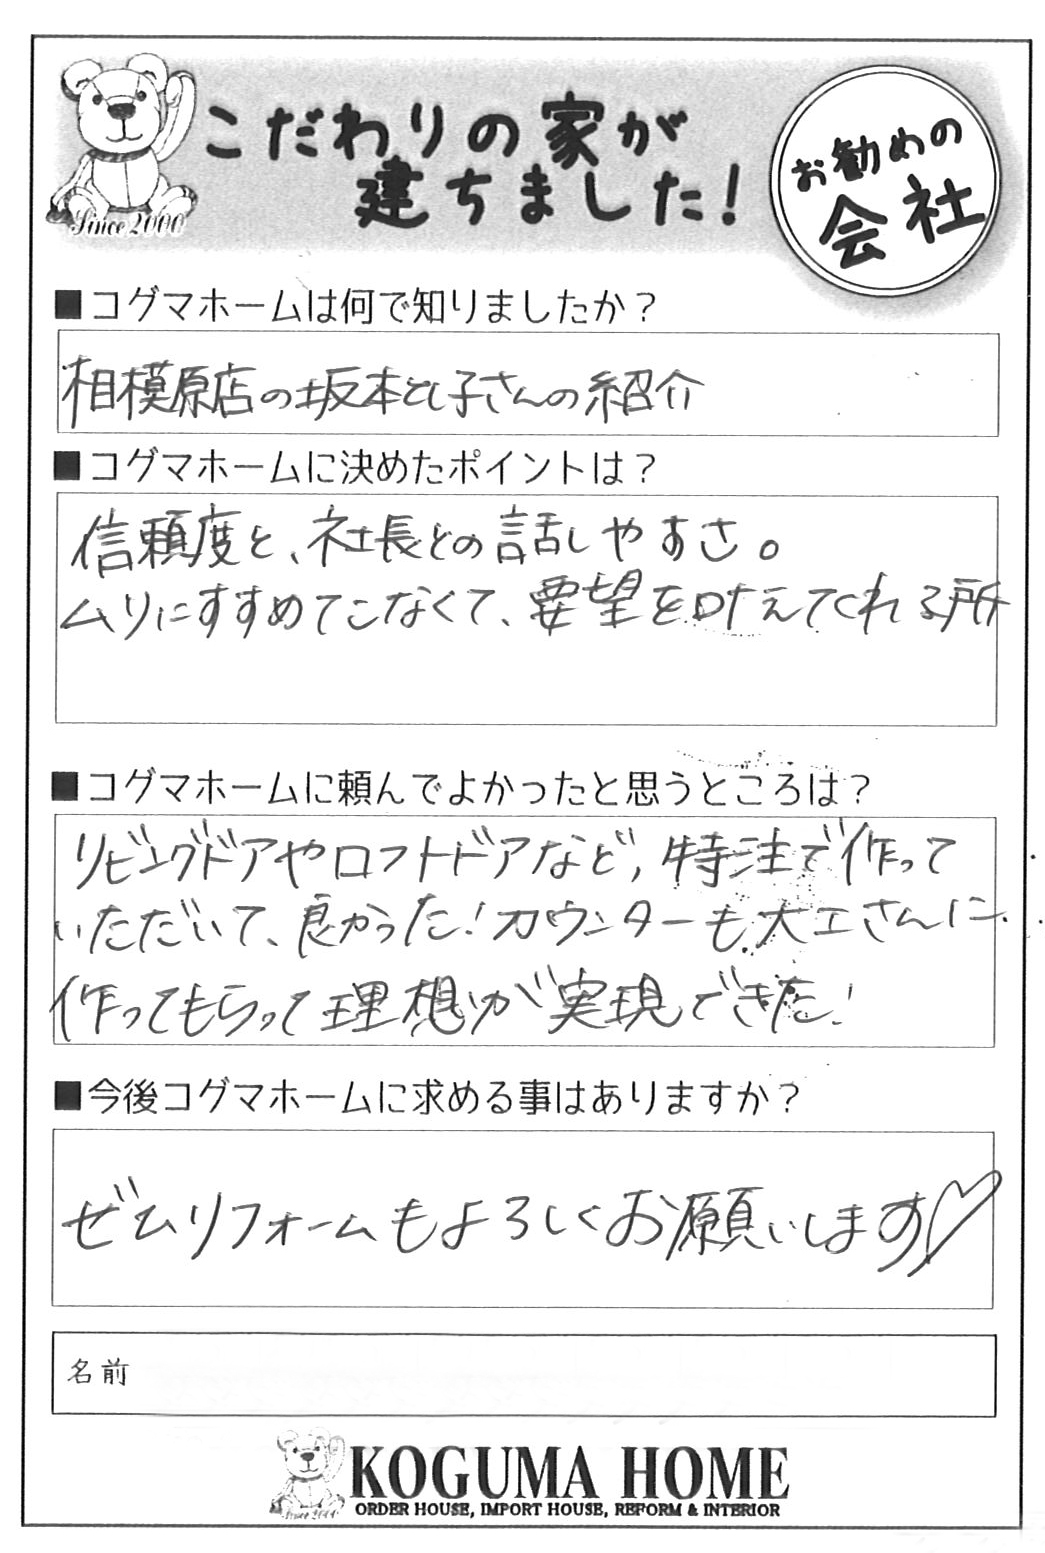 こだわりの家が
建ちました！
お勧めの
会社
Since 2000
■コグマホームは何で知りましたか？
相模原店の坂本とし子さんの紹介
■コグマホームに決めたポイントは？
信頼度と、社長との話しやすさ。
ムリにすすめてこなくて、要望を叶えてくれる所
■コグマホームに頼んでよかったと思うところは？
リビングドアやロフトドアなど、特注で作って
いただいて、良かった！カウンターも大工さんに
作ってもらって理想が実現できた！
■今後コグマホームに求める事はありますか？
ぜひリフォームもよろしくお願いします♡
名前
Since 2000
KOGUMA HOME
ORDER HOUSE, IMPORT HOUSE, REFORM & INTERIOR